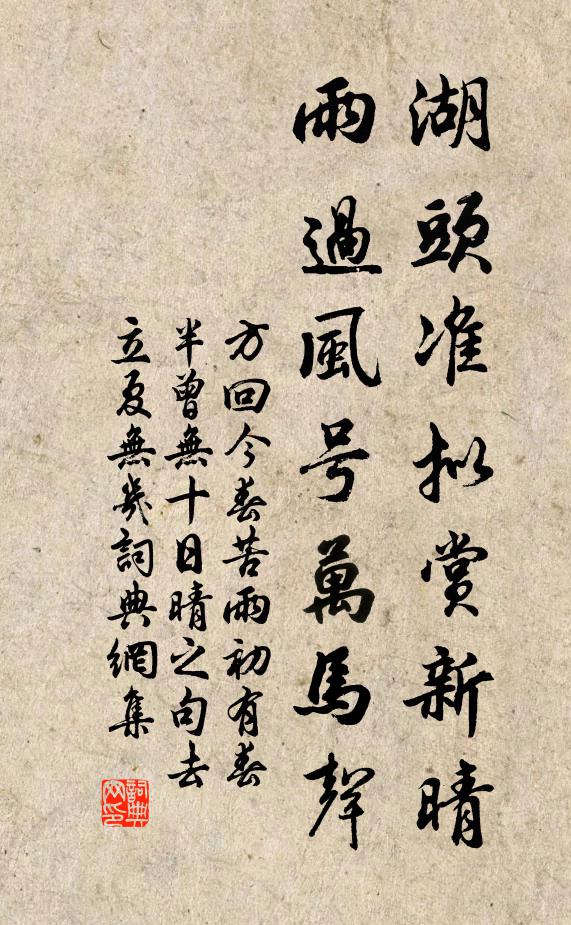 湖頭准拟賞新晴
雨過風号萬馬聲
方回今春苦雨初有春
半曾無十日晴之句去
立夏無幾詞典網集
詞典
网印